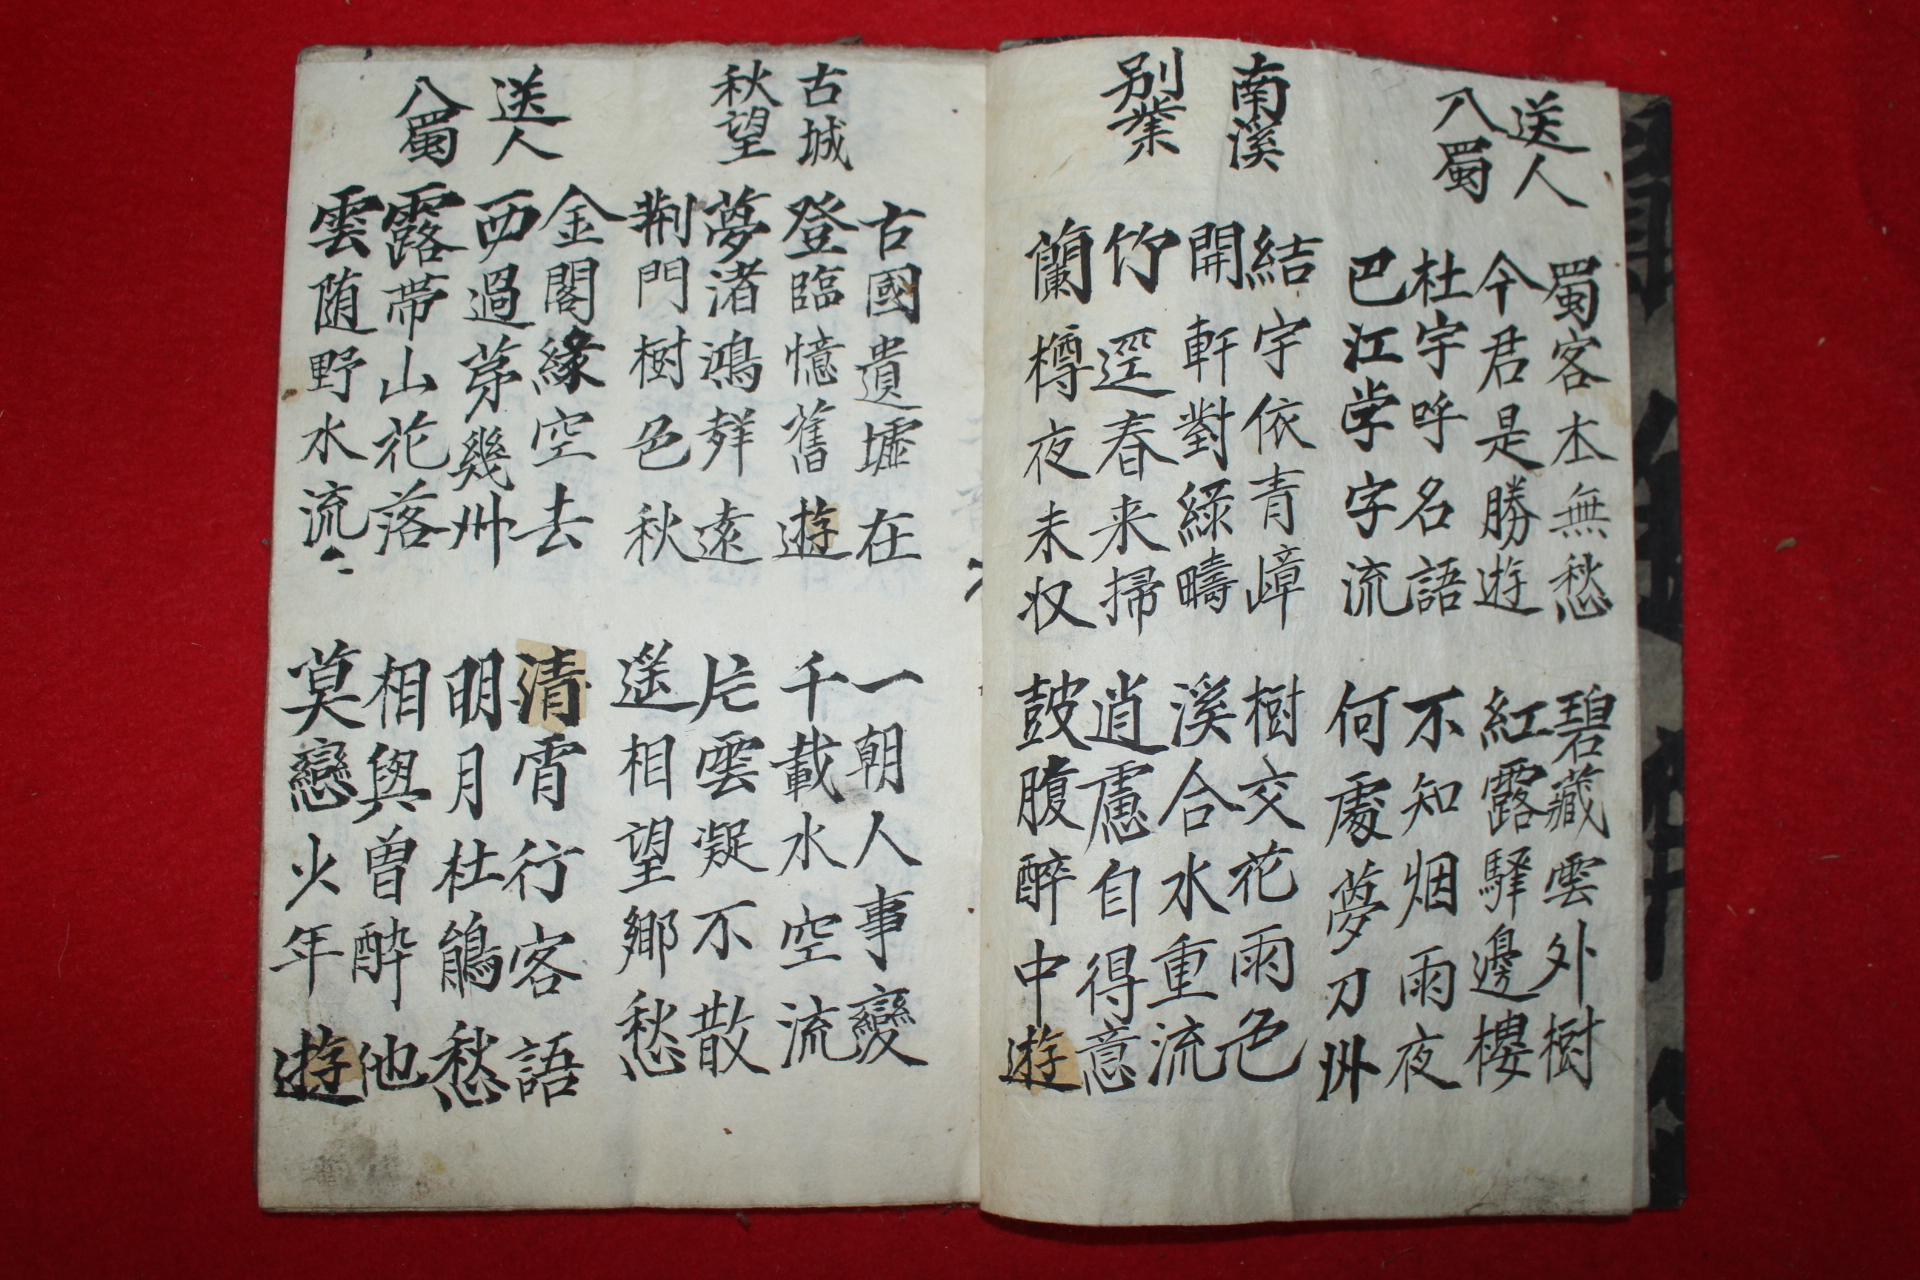 送人
八蜀
蜀客本無愁
碧藏雲外樹
今君是勝遊
紅露驛邊樓
杜宇呼名語
不知烟雨夜
巴江学字流
何處夢刀州
南溪
別業
結宇依青嶂
樹交花雨色
開軒對綠疇
溪合水重流
竹逕春来掃
逍慮自得意
蘭樽夜未収
鼓腹醉中遊
古城
秋望
古國遺墟在
一朝人事變
登臨憶舊遊
千載水空流
夢渚鴻聲遠
片雲凝不散
荆門樹色秋
遥相望鄉愁
送人
八蜀
金閣緣空去
清宵行客語
西過芽幾州
明月杜鵑愁
露帶山花落
相與曽酔他
雲随野水流
莫戀火年遊